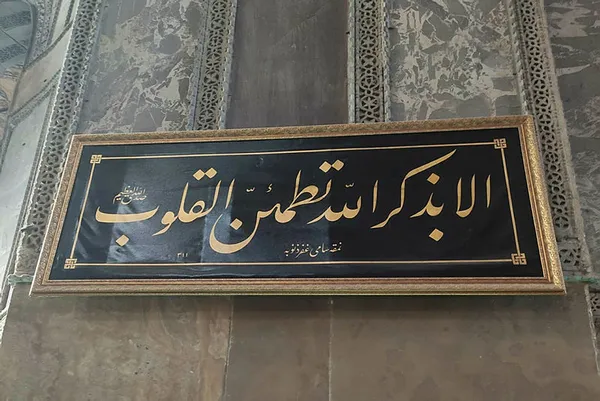 الا بذكر الله تطمئن القلوب
صدق الله العظيم
نمقه سامى غفر ذنوبه